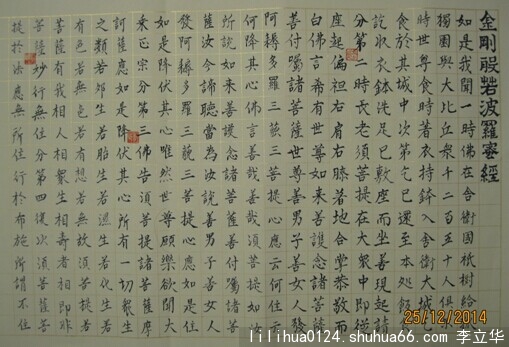 金剛般若波羅蜜經
如是我聞一時佛在舍衛國祇樹給孤
獨園與大比丘衆千二百五十人俱
時世尊食時著衣持鉢入舍衛大城乞
食於其城中次第乞已還至本処飯食
訖收衣鉢洗足已敷座而坐善現起請
分第二時長老須菩提在大衆中即從
座起偏袒右肩右膝著地合掌恭敬而
白佛言希有世尊如来善護念諸菩薩
善付囑諸菩薩世尊善男子善女人發
阿耨多羅三藐三菩提心應云何住云
何降其心佛言善哉善哉須菩提如汝
所說如来善護念諸菩薩善付囑諸菩
薩汝今諦聽當為汝說善男子善女人
發阿耨多羅三藐三菩提心應如是住
如是降伏其心唯然世尊願樂欲聞大
乘正宗分第三佛告須菩提諸菩薩摩
訶薩應如是降伏其心所有一切衆生
之類若卵生若胎生若濕生若化生若
有色若無色若有想若無故須菩提若
菩薩有我相人相衆生相壽者相即非
菩薩妙行無住分第四復次須菩薩
提於法應無所住行於布施所謂不住
25/12/2014
lilihua0124.shuhua66.com 李立华